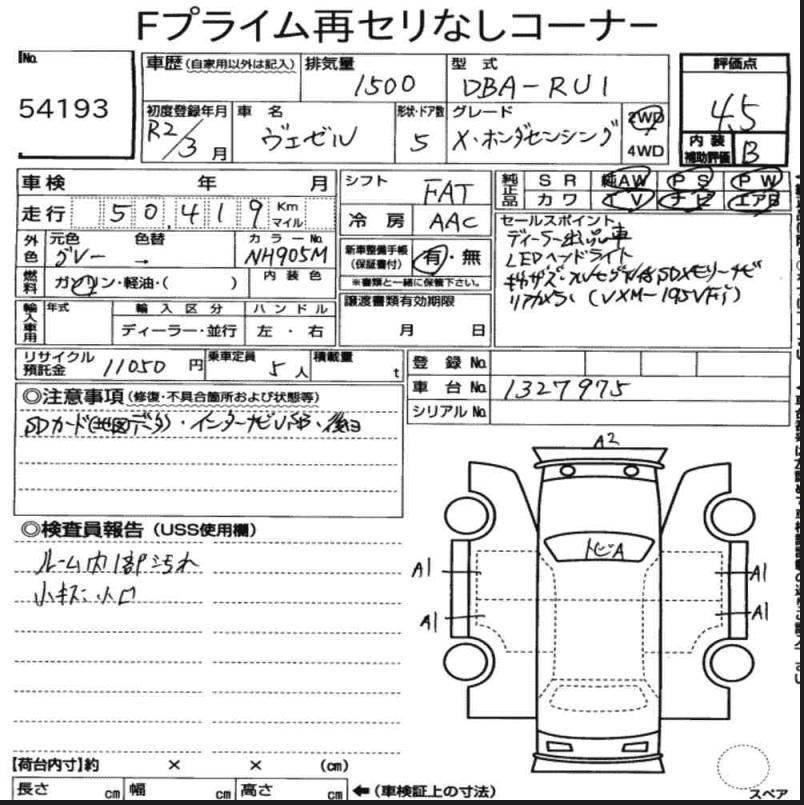 Fプライム再セリなしコーナー
No.
54193
車歴(自家用以外は記入)
排気量
1500
型式
DBA-RU1
評価点
4.5
初度登録年月
R2/3月
車名
ヴェゼル
形状・ドア数
5
グレード
X・ホンダセンシング
2WD
4WD
内装
補助評価
B
車検 年 月
シフト
FAT
純正品
SR 純AW PS PW
カワ TV ナビ エアB
走行
50,419
Km
マイル
冷房
AAC
外色
元色 色替
グレー → 
カラーNo.
NH905M
新車整備手帳
(保証書付)
有・無
※書類と一緒に保管下さい。
セールスポイント
ディーラー出品車
LEDヘッドライト
SDメモリーナビ
リアカメラ (VXM-195VFi)
燃料
ガソリン・軽油・( )
内装色
輸入車用
年式
輸入区分
ハンドル
ディーラー・並行
左・右
譲渡書類有効期限
月 日
リサイクル
預託金
11050円
乗車定員
5人
積載量
t
登録No.
車台No.
1327975
シリアルNo.
◎注意事項(修復・不具合箇所および状態等)
SDカード(地図データ)・インターナビUSB・後日
◎検査員報告(USS使用欄)
ルーム内1部汚れ
小キズ小凹
A2
トビA
A1
A1
A1
A1
【荷台内寸】約 × × (cm)
長さ cm 幅 cm 高さ cm ←(車検証上の寸法)
スペア